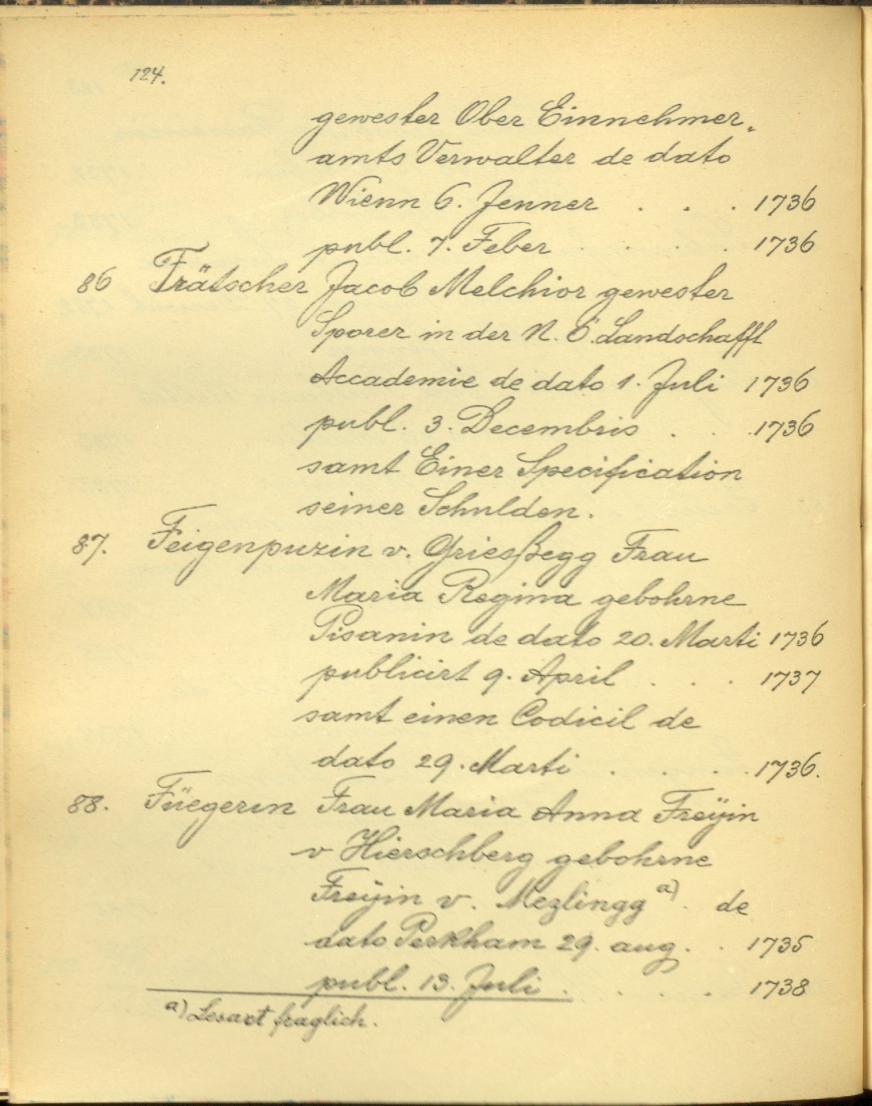 124.
gewester Ober Einnehmer„
amts Verwalter de dato
Wienn 6. Jenner . . . 1736
publ. 7. Feber . . . 1736
86 Frätscher Jacob Melchior gewester
Sporer in der N. Ö. Landschafft
Accademie de dato 1. Juli 1736
publ. 3. Decembris . . 1736
samt Einer Specification
seiner Schulden.
87. Feigenpuzin v. Griesßegg Frau
Maria Regina gebohrne
Pisanin de dato 20. Marti 1736
publicirt 9. April . . . 1737
samt einen Codicil de
dato 29. Marti . . . . 1736.
88. Füegerin Frau Maria Anna Freÿin
v Hierschberg gebohrne
Freÿin v. Mezlingg a) de
dato Perkham 29. aug. . 1735
publ. 13. Juli . . . . . 1738
a) Lesart fraglich.